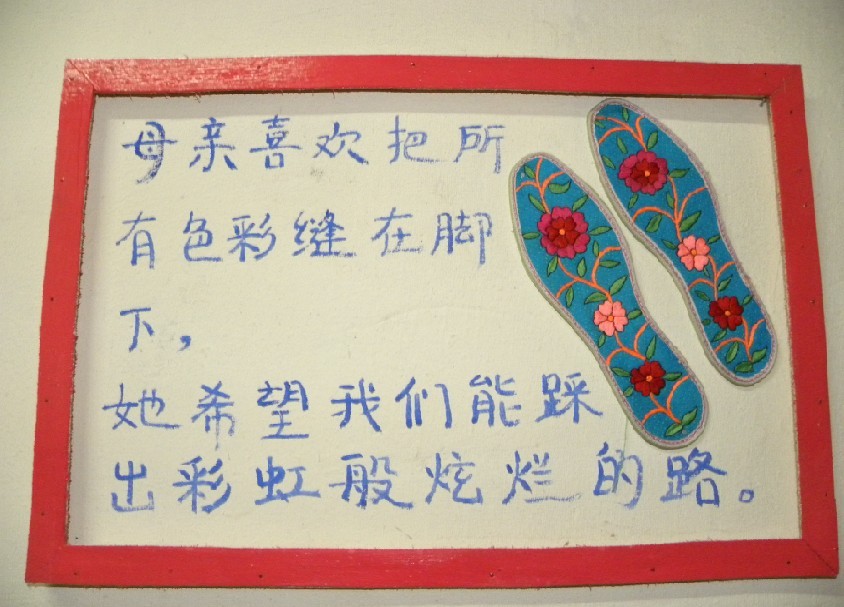 母亲喜欢把所
有色彩缝在脚
下，
她希望我们能踩
出彩虹般炫烂的路。